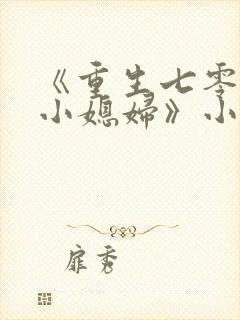 《重生七零
小媳妇》小
扉秀